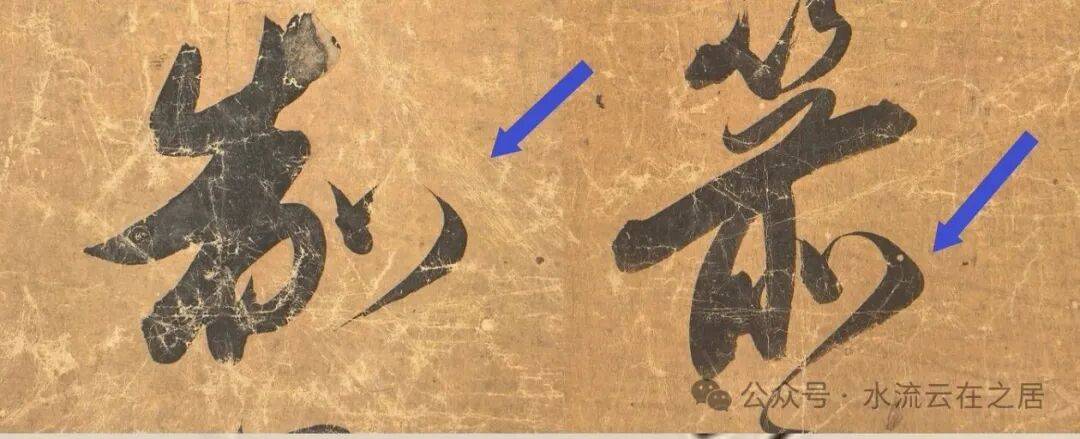 制 前
公众号 · 水流云在之居